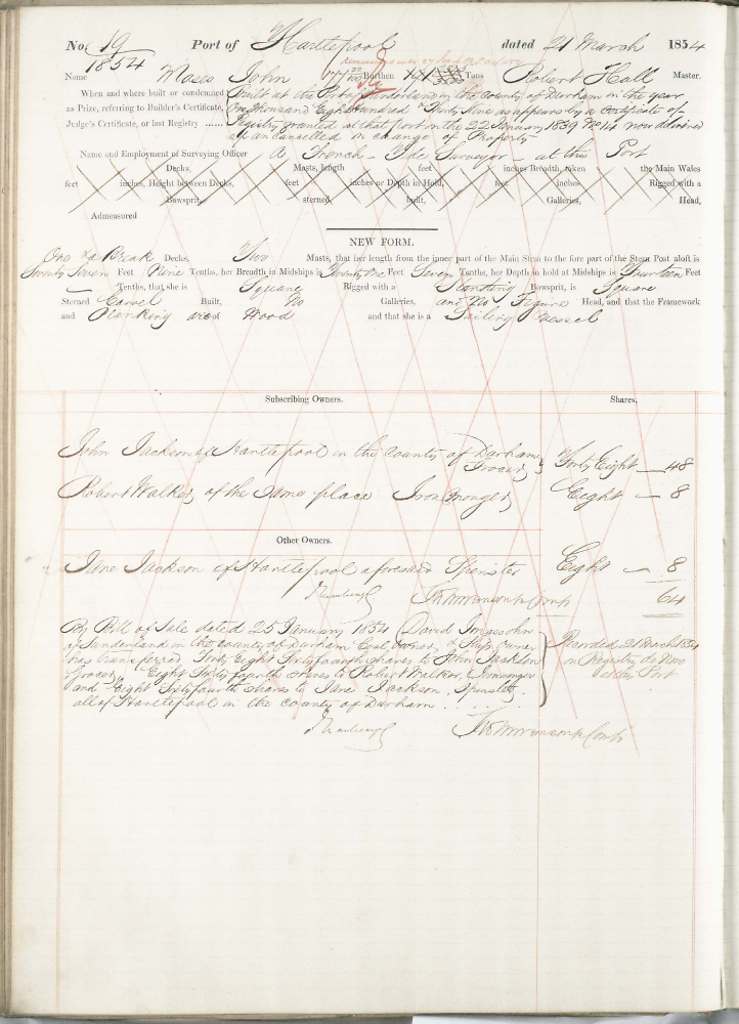 No. 19 Port of Hartlepool dated 21 March 1854
1854
Name John Burthen Tons Robert Hall Master.
When and where built or condemned Built at the Port of Sunderland in the County of Durham in the year
as Prize, referring to Builder's Certificate, One thousand Eight hundred & Thirty Nine as appears by a Certificate of
Judge's Certificate, or last Registry ...... Registry granted at that port on the 22 January 1839 No 14 now delivered
up cancelled on change of Property
Name and Employment of Surveying Officer de French - Tide Surveyor - at this Port
Decks, Masts, length feet inches Breadth, taken the Main Wales
feet inches, Height between Decks, feet inches or Depth in Hold, feet inches Rigged with a
Bowsprit, sterned built, Galleries, Head,
Admeasured
NEW FORM.
One & a Break Decks, Two Masts, that her length from the inner part of the Main Stem to the fore part of the Stern Post aloft is
Seventy Seven Feet Nine Tenths, her Breadth in Midships is Twenty One Feet Seven Tenths, her Depth in hold at Midships is Fourteen Feet
— Tenths, that she is Square Rigged with a Standing Bowsprit, is Square
Sterned Carvel Built, No Galleries, and No Figure Head, and that the Framework
and Planking are of Wood and that she is a Sailing Vessel
Subscribing Owners. Shares.
John Jackson of Hartlepool in the County of Durham
Grocer Forty Eight — 48
Robert Walker of the same place Iron Monger Eight — 8
Other Owners.
Jane Jackson of Hartlepool aforesaid Spinster Eight — 8
64
By Bill of Sale dated 25 January 1854 David John
of Sunderland in the County of Durham & Ship Owner
has transferred Forty Eight Sixty fourth shares to John Jackson
Grocer, Eight Sixty fourth shares to Robert Walker, Ironmonger
and Eight Sixty fourth shares to Jane Jackson, Spinster
all of Hartlepool in the County of Durham
Recorded 21 March 1854
on Registry de Novo
at this Port